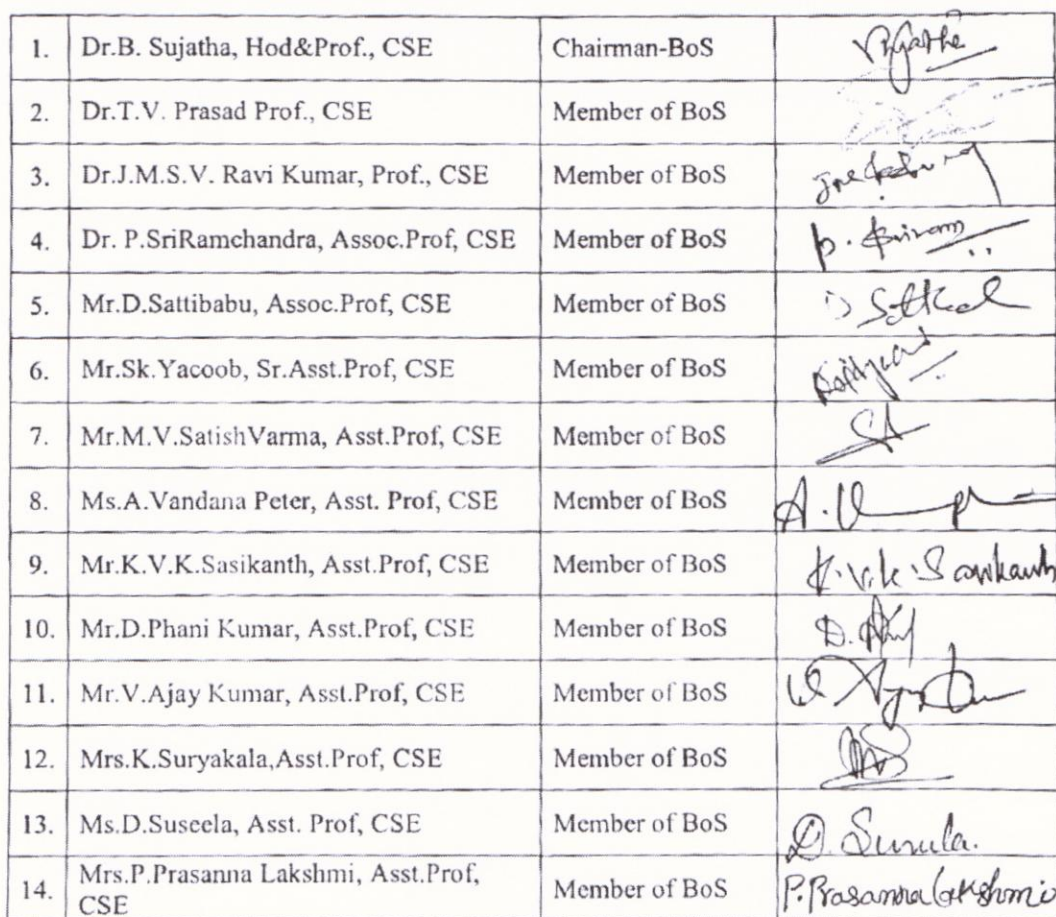 1. Dr.B. Sujatha, Hod&Prof., CSE Chairman-BoS
2. Dr.T.V. Prasad Prof., CSE Member of BoS
3. Dr.J.M.S.V. Ravi Kumar, Prof., CSE Member of BoS
4. Dr. P.SriRamchandra, Assoc.Prof, CSE Member of BoS
5. Mr.D.Sattibabu, Assoc.Prof, CSE Member of BoS
6. Mr.Sk.Yacoob, Sr.Asst.Prof, CSE Member of BoS
7. Mr.M.V.SatishVarma, Asst.Prof, CSE Member of BoS
8. Ms.A.Vandana Peter, Asst. Prof, CSE Member of BoS
9. Mr.K.V.K.Sasikanth, Asst.Prof, CSE Member of BoS K.V.K.Sasikanth
10. Mr.D.Phani Kumar, Asst.Prof, CSE Member of BoS
11. Mr.V.Ajay Kumar, Asst.Prof, CSE Member of BoS
12. Mrs.K.Suryakala,Asst.Prof, CSE Member of BoS
13. Ms.D.Suseela, Asst. Prof, CSE Member of BoS
14. Mrs.P.Prasanna Lakshmi, Asst.Prof, Member of BoS P.Prasanna Lakshmi
CSE